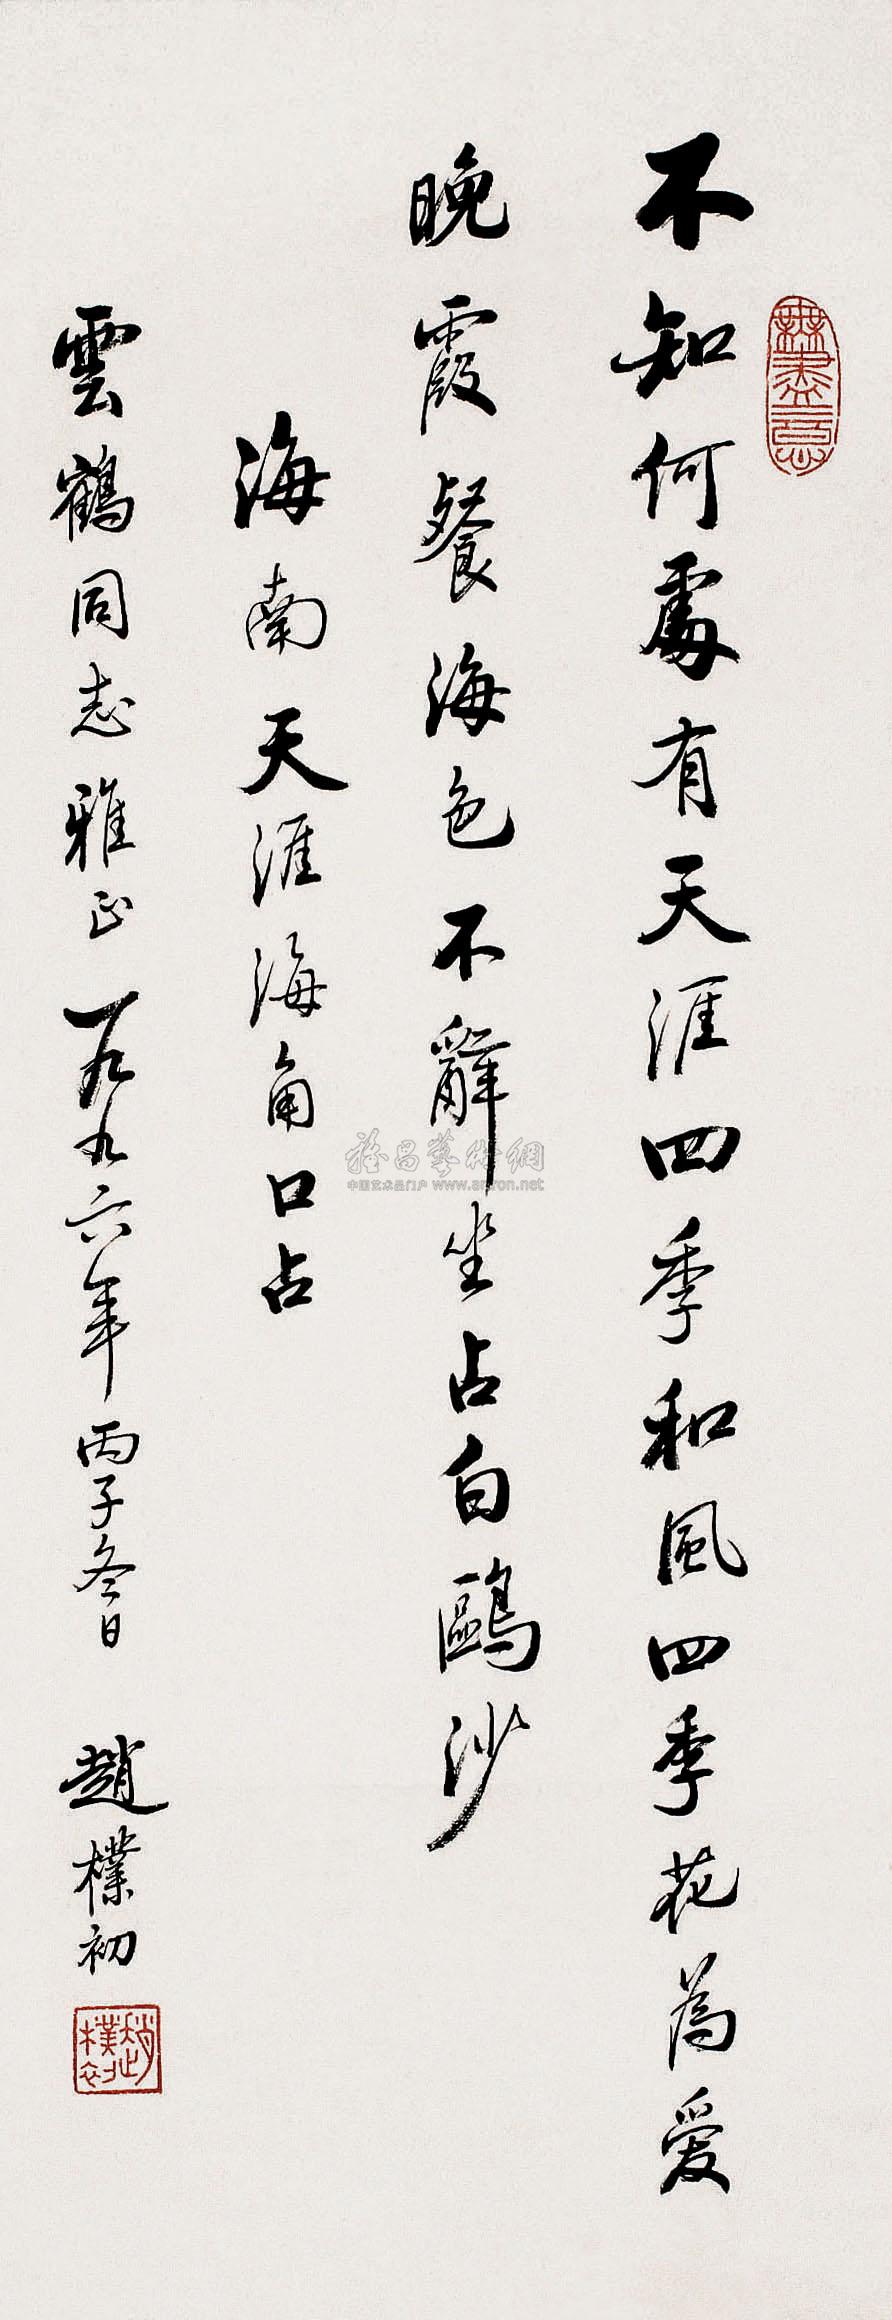 不知何處有天涯四季和風四季花為爱
晚霞餐海色不辭坐占白鷗沙
海南天涯海角口占
雲鶴同志雅正一九九六年丙子冬日 趙樸初
無盡意
趙樸初
雅昌藝術網
中国艺术品门户 www.artron.net